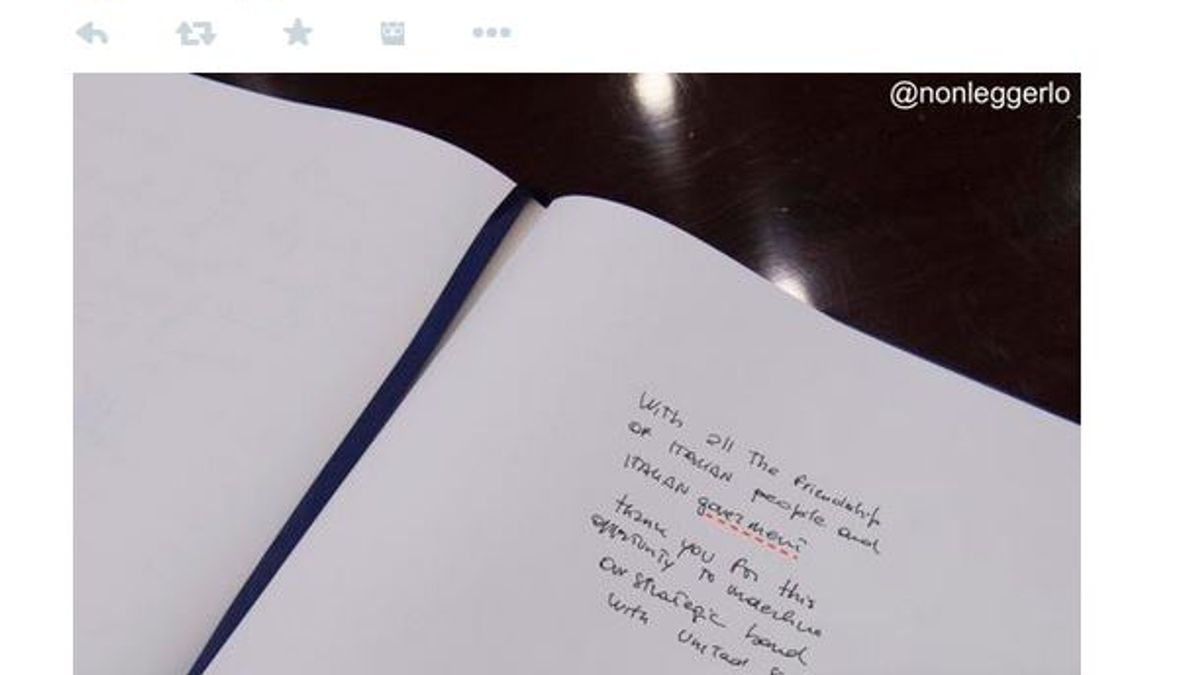 @nonleggerlo
With all The friendship
of ITALIAN people and
ITALIAN goverment
thank you for this
opportunity to underline
our strategic bond
with United